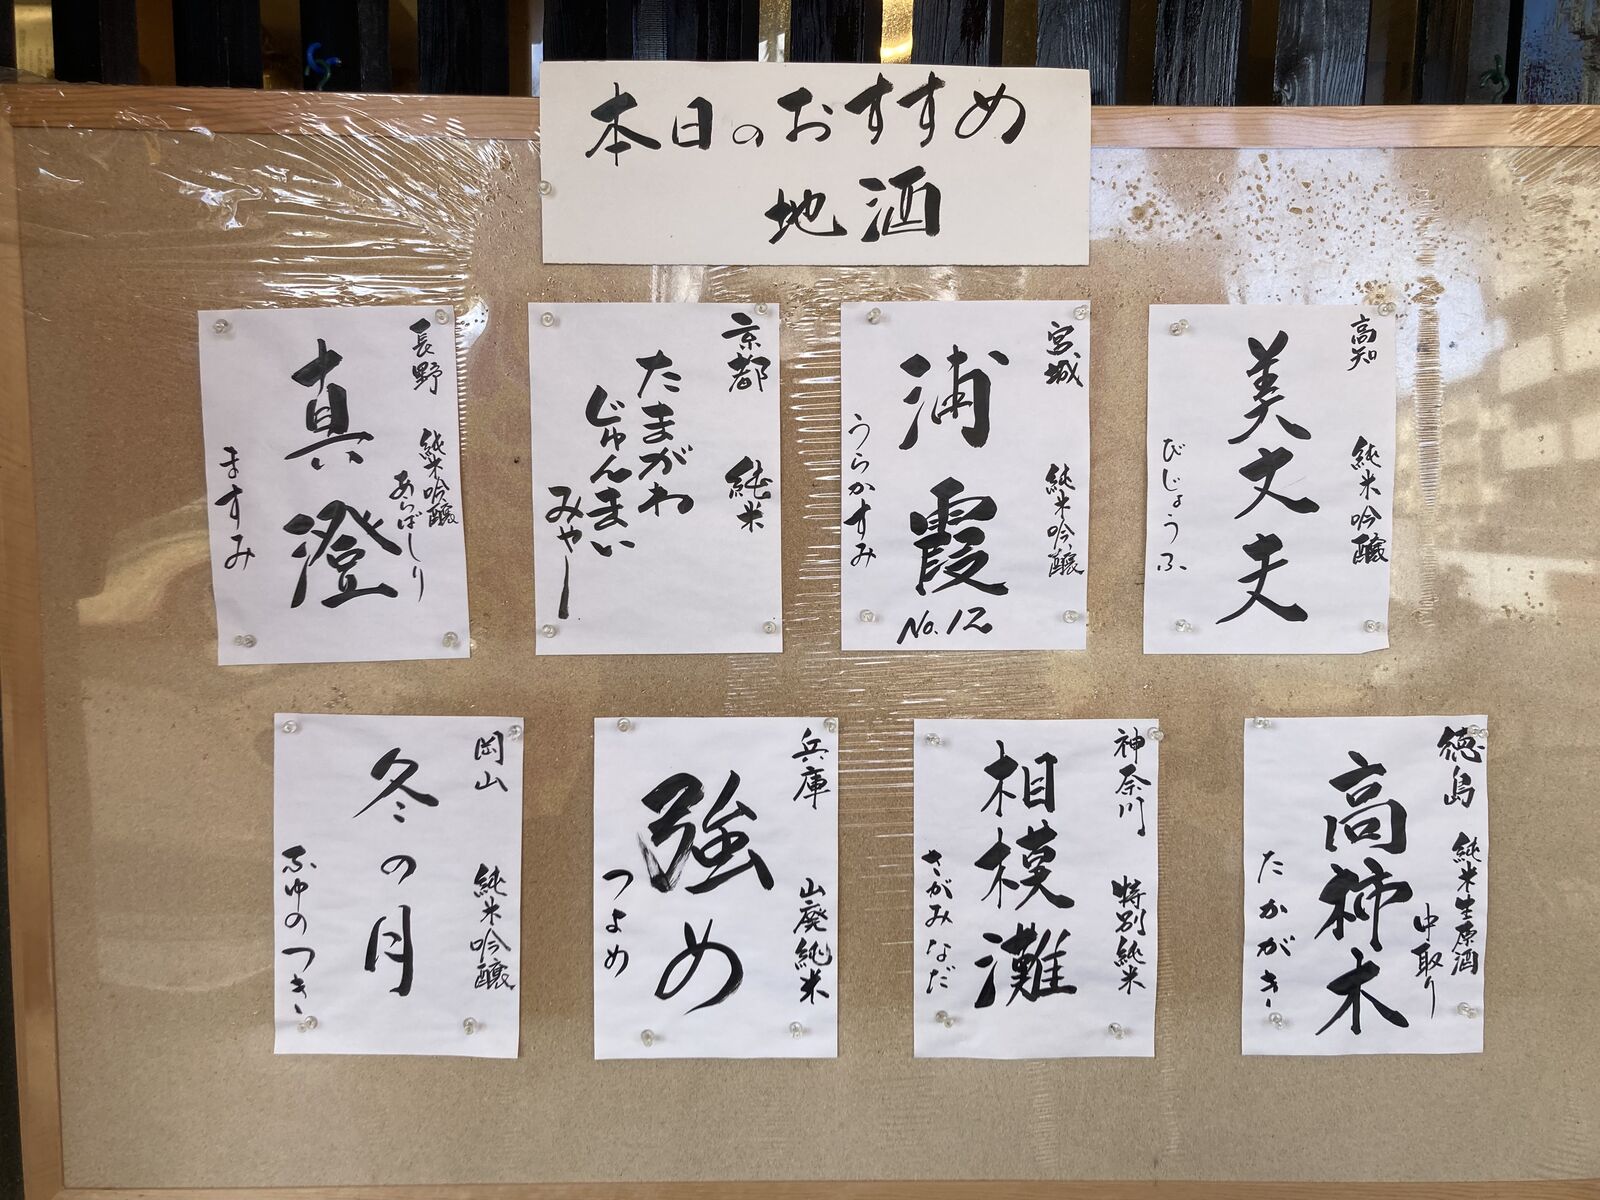 本日のおすすめ
地酒
高知 純米吟醸
美丈夫
びじょうふ
宮城 純米吟醸
浦霞
No.12
うらかすみ
京都 純米
たまがわ
じゅんまい
みゃー
長野 純米吟醸
あらばしり
真澄
ますみ
徳島 純米生原酒
中取り
高柿木
たかがき
神奈川 特別純米
相模灘
さがみなだ
兵庫 山廃純米
強め
つよめ
岡山 純米吟醸
冬の月
ふゆのつき